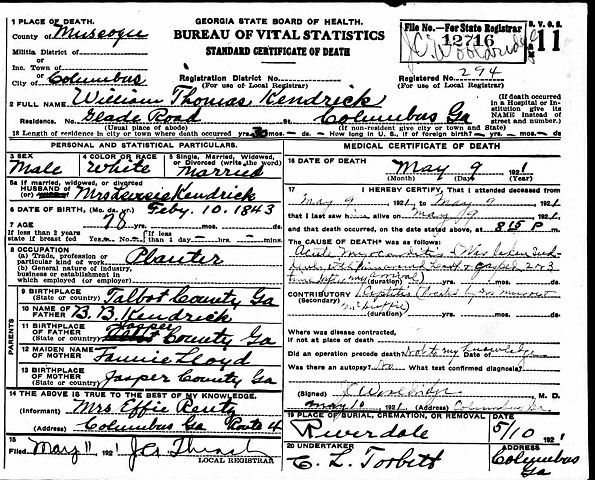 1 PLACE OF DEATH.
County of Muscogee
Militia District of
or
Inc. Town of
or
City of Columbus
GEORGIA STATE BOARD OF HEALTH.
BUREAU OF VITAL STATISTICS
STANDARD CERTIFICATE OF DEATH
Registration District No.
(For use of Local Registrar)
File No.—For State Registrar
12716
11
Registered No. 294
(For use of Local Registrar)
2 FULL NAME William Thomas Kendrick
(If death occurred in a Hospital or Institution give its NAME instead of street and number.)
Residence. No. Glade Road St. Columbus Ga
(Usual place of abode) (If non-resident give city or town and State)
18 Length of residence in city or town where death occurred yrs. mos. ds. How long in U. S., if of foreign birth? yrs. mos. ds
PERSONAL AND STATISTICAL PARTICULARS.
3 SEX Male
4 COLOR OR RACE White
5 Single, Married, Widowed, or Divorced (write the word) Married
5a If married, widowed, or divorced
HUSBAND OF Mrs Kendrick
6 DATE OF BIRTH, (Mo. da. yr.) Feby. 10. 1843
7 AGE 78 yrs. mos. ds.
If less than 2 years state if breast fed Yes No If less than 1 day hrs. min.
8 OCCUPATION
(a) Trade, profession or particular kind of work Planter
(b) General nature of industry, business or establishment in which employed (or employer)
9 BIRTHPLACE (State or country) Talbot County Ga
PARENTS
10 NAME OF FATHER B. B. Kendrick
11 BIRTHPLACE OF FATHER (State or country) Jasper County Ga
12 MAIDEN NAME OF MOTHER Fannie Lloyd
13 BIRTHPLACE OF MOTHER (State or country) Jasper County Ga
14 THE ABOVE IS TRUE TO THE BEST OF MY KNOWLEDGE.
(Informant) Mrs Effie
(Address) Columbus Ga Route 4
15 Filed May 11 1921
LOCAL REGISTRAR
MEDICAL CERTIFICATE OF DEATH.
16 DATE OF DEATH May 9 1921
(Month) (Day) (Year)
17 I HEREBY CERTIFY, That I attended deceased from
May 9 1921, to May 9 1921
that I last saw him alive on May 9 1921
and that death occurred, on the date stated above, at 815 P m.
The CAUSE OF DEATH* was as follows:
Acute
(duration) yrs. mos. ds.
CONTRIBUTORY
(Secondary)
(duration) yrs. mos. ds.
Where was disease contracted,
if not at place of death
Did an operation precede death Not to my knowledge Date of
Was there an autopsy? No What test confirmed diagnosis?
(Signed) M. D.
May 10 1921 (Address) Columbus Ga.
19 PLACE OF BURIAL, CREMATION, OR REMOVAL DATE
Riverdale 5/10 1921
20 UNDERTAKER ADDRESS
C. L. Torbett Columbus Ga